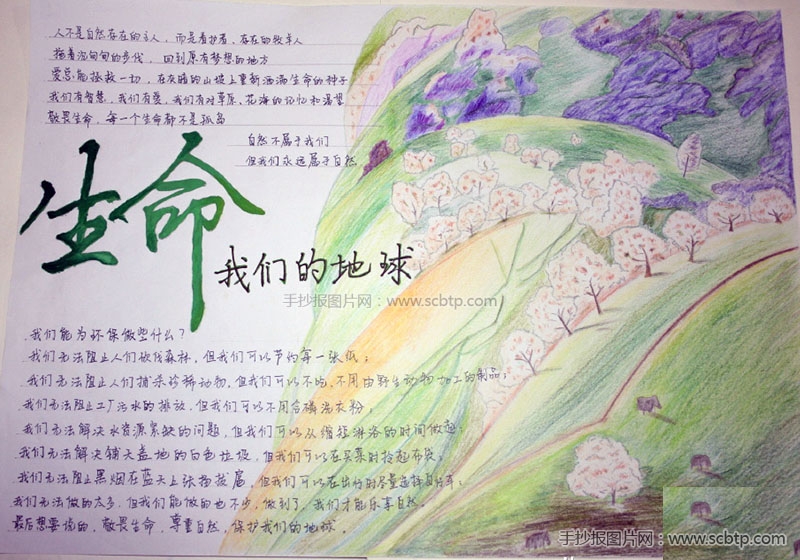 人不是自然存在的主人，而是看护者、存在的牧羊人
拖着沉甸甸的步伐，回到原有梦想的地方
爱总能拯救一切，在灰暗的山坡上重新洒满生命的种子
我们有智慧，我们有爱，我们有对草原、花海的记忆和渴望
敬畏生命，每一个生命都不是孤岛
自然不属于我们
但我们永远属于自然
生命
我们的地球
手抄报图片网：www.scbtp.com
我们能为环保做些什么？
我们无法阻止人们砍伐森林，但我们可以节约每一张纸；
我们无法阻止人们捕杀珍稀动物，但我们可以不吃，不用由野生动物加工的制品；
我们无法阻止工厂污水的排放，但我们可以不用含磷洗衣粉；
我们无法解决水资源紧缺的问题，但我们可以从缩短淋浴的时间做起；
我们无法解决铺天盖地的白色垃圾，但我们可以在买菜时拎起布袋；
我们无法阻止黑烟在蓝天上张扬拔扈，但我们可以在出行时尽量选择自行车；
我们无法做的太多，但我们能做的也不少，做到了，我们才能乐享自然。
最后想要说的，敬畏生命，尊重自然，保护我们的地球。
手抄报图片网：www.scbtp.com